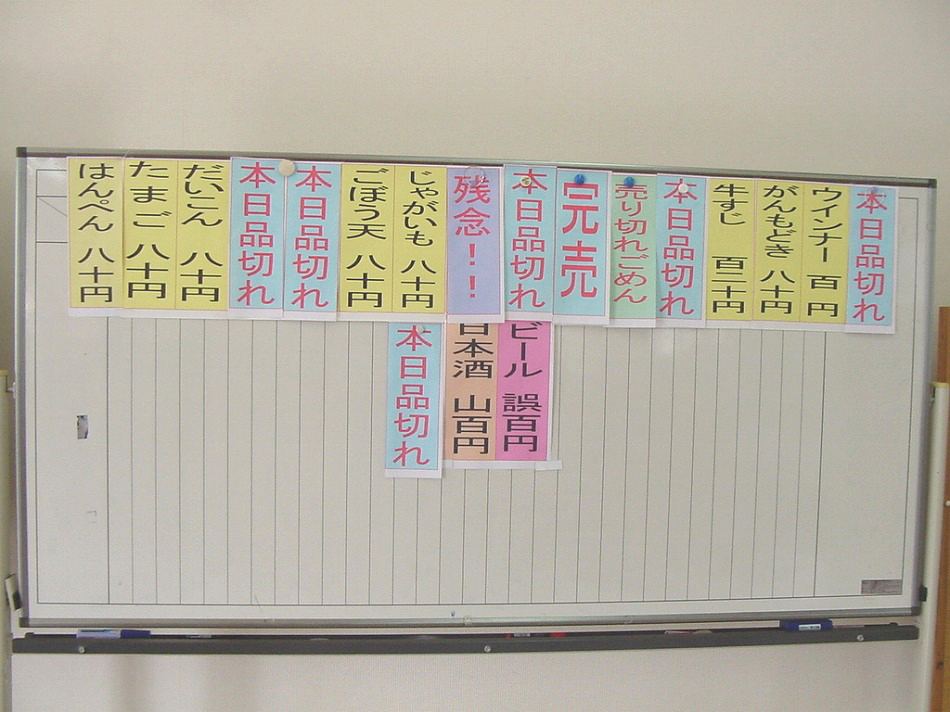 本日品切れ
ウインナー 百円
がんもどき 八十円
牛すじ 百二十円
本日品切れ
売り切れごめん
完売
本日品切れ
残念!!
じゃがいも 八十円
ごぼう天 八十円
本日品切れ
本日品切れ
だいこん 八十円
たまご 八十円
はんぺん 八十円
ビール 誤百円
日本酒 山百円
本日品切れ